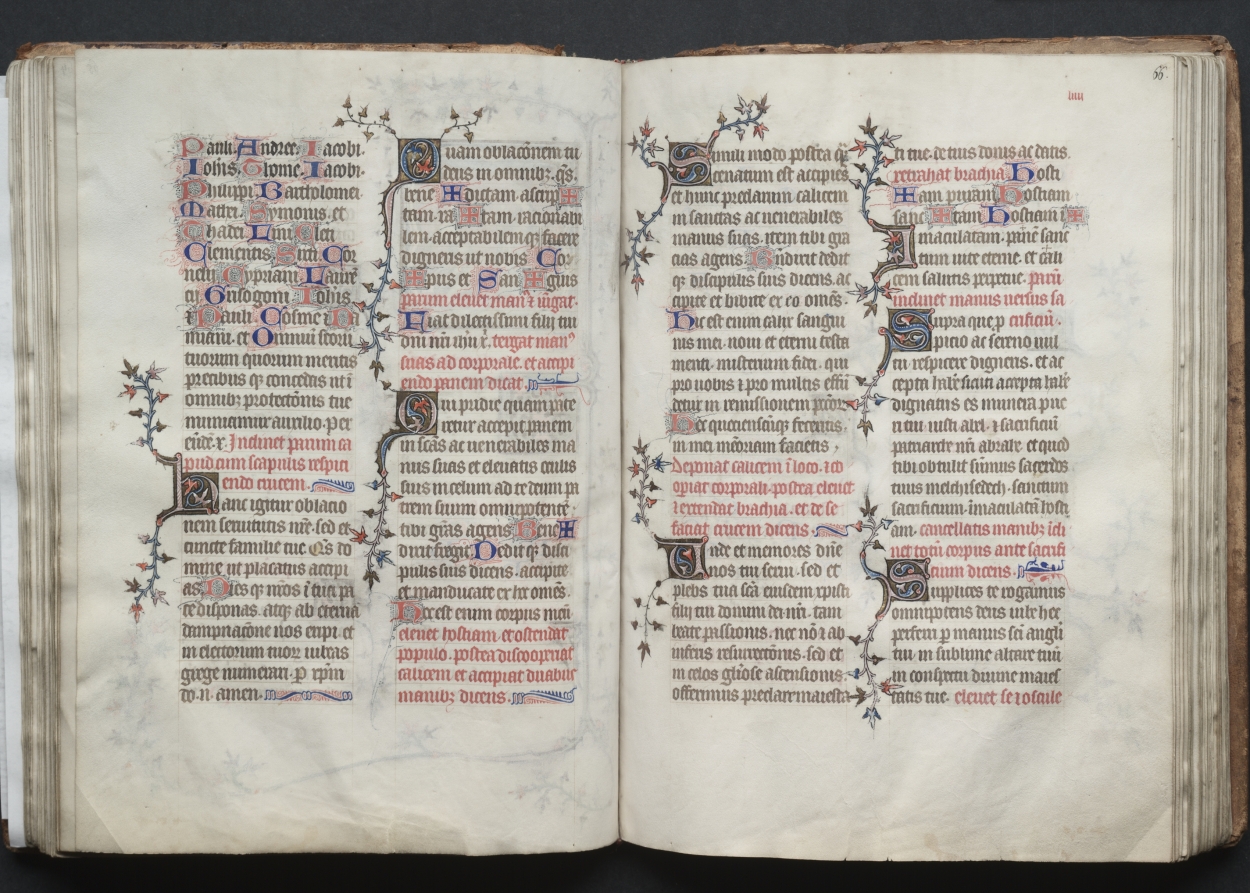 Pauli. Andree. Iacobi.
Iohis. Thome. Iacobi.
Philippi. Bartholomei.
Mathei. Symonis. et
Thadei. Lini. Cleti.
Clementis. Sixti. Cor
nelij. Cypriani. Laure
tij. Grisogoni. Iohis
⁊ Pauli. Cosme ⁊ Da
miani. et Omniū sctorū
tuorum quorum mentis
precibus qȝ concedas ut ī
omnibȝ protectōnis tue
muniamur auxilio. Per
eūdē. x. Inclinet parum ca
pud cum scapulis respici
endo crucem.
Hanc igitur oblatio
nem seruitutis nrē. sed et
cuncte familie tue. Qs do
mine ut placatus accipi
as. Dies qȝ nrōs ī tua pa
ce disponas. atqȝ ab eterna
dampnacōne nos eripi. et
in electorum tuoȝ iubeas
grege numerari. p xpm
do. n. amen.
Quam oblacōnem tu
deus in omnibȝ. qs.
bene ✠ dictam. ascrip ✠
tam. ra ✠ tam. racionabi
lem. acceptabilem qȝ facere
digneris ut nobis Cor
✠ pus et San ✠ guis
parum eleuet manꝰ ⁊ iūgat.
Fiat dilectissimi filij tui
dni nri ihu x̄. tergat manꝰ
suas ad corporale. et accipi
endo panem dicat.
Qui pridie quam pate
retur accepit panem
in scās ac uenerabiles ma
nus suas et eleuatis oculis
suis in celum ad te deum pa
trem suum omnipotentē
tibi grās agens Bene ✠
dixit fregit Dedit qȝ disci
pulis suis dicens. accipite
et manducate ex hc omēs.
Hoc est enim corpus meū
eleuet hostiam. et ostendat
populo. postea discooperiat
calicem et accipiat duabus
manibȝ dicens.
Simili modo postea qȝ
cenatum est accipiēs
et hunc preclarum calicem
in sanctas ac uenerabiles
manus suas. item tibi gra
cias agens Bndixit dedit
qȝ discipulis suis dicens. ac
cipite et bibite ex eo omēs.
Hic est enim calix sangui
nis mei. noui et eterni testa
menti. misterium fidei. qui
pro uobis ⁊ pro multis effū
detur in remissionem pctoȝ.
Hec quociensūqȝ feceritis.
in mei mēoriam facietis.
Deponat calicem ī loco. ⁊ co
opiat corporali. postea eleuet
⁊ extendat brachia. et de se
faciat crucem dicens.
Unde et memores dnē
nos tui serui. sed et
plebs tua scā eiusdem xpisti
filij tui domini dei nri. tam
beate passionis. nec nō ⁊ ab
inferis resurrectōnis. sed et
in celos gliōse ascensionis.
offerimus preclare maiesta
66
iiii
ti tue. de tuis donis ac datis.
retrahat brachia. Hosti
✠ am puram Hostiam
sanc ✠ tam Hostiam ī ✠
maculatam. panē sanc
tum uite eterne. et cali
cem salutis perpetue. parū
inclinet manus uersus sa
Supra que p crificiū.
picio ac sereno uul
tu respicere digneris. et ac
cepta habē sicuti accepta habē
dignatus es munera pue
ri tui iusti abel. ⁊ sacrificiū
patriarche nri abrahe. et quod
tibi obtulit sūmus sacerdos
tuus melchisedech. sanctum
sacrificium. īmaculatā hosti
am. cancellatis manibȝ ich
net totū corpus ante sacrifi
cium dicens.
Supplices te rogamus
omnipotens deus iube hec
perferri p manus sci angli
tui. in sublime altare tuū
in conspectu diuine maies
tatis tue. eleuet se ⁊ oscule